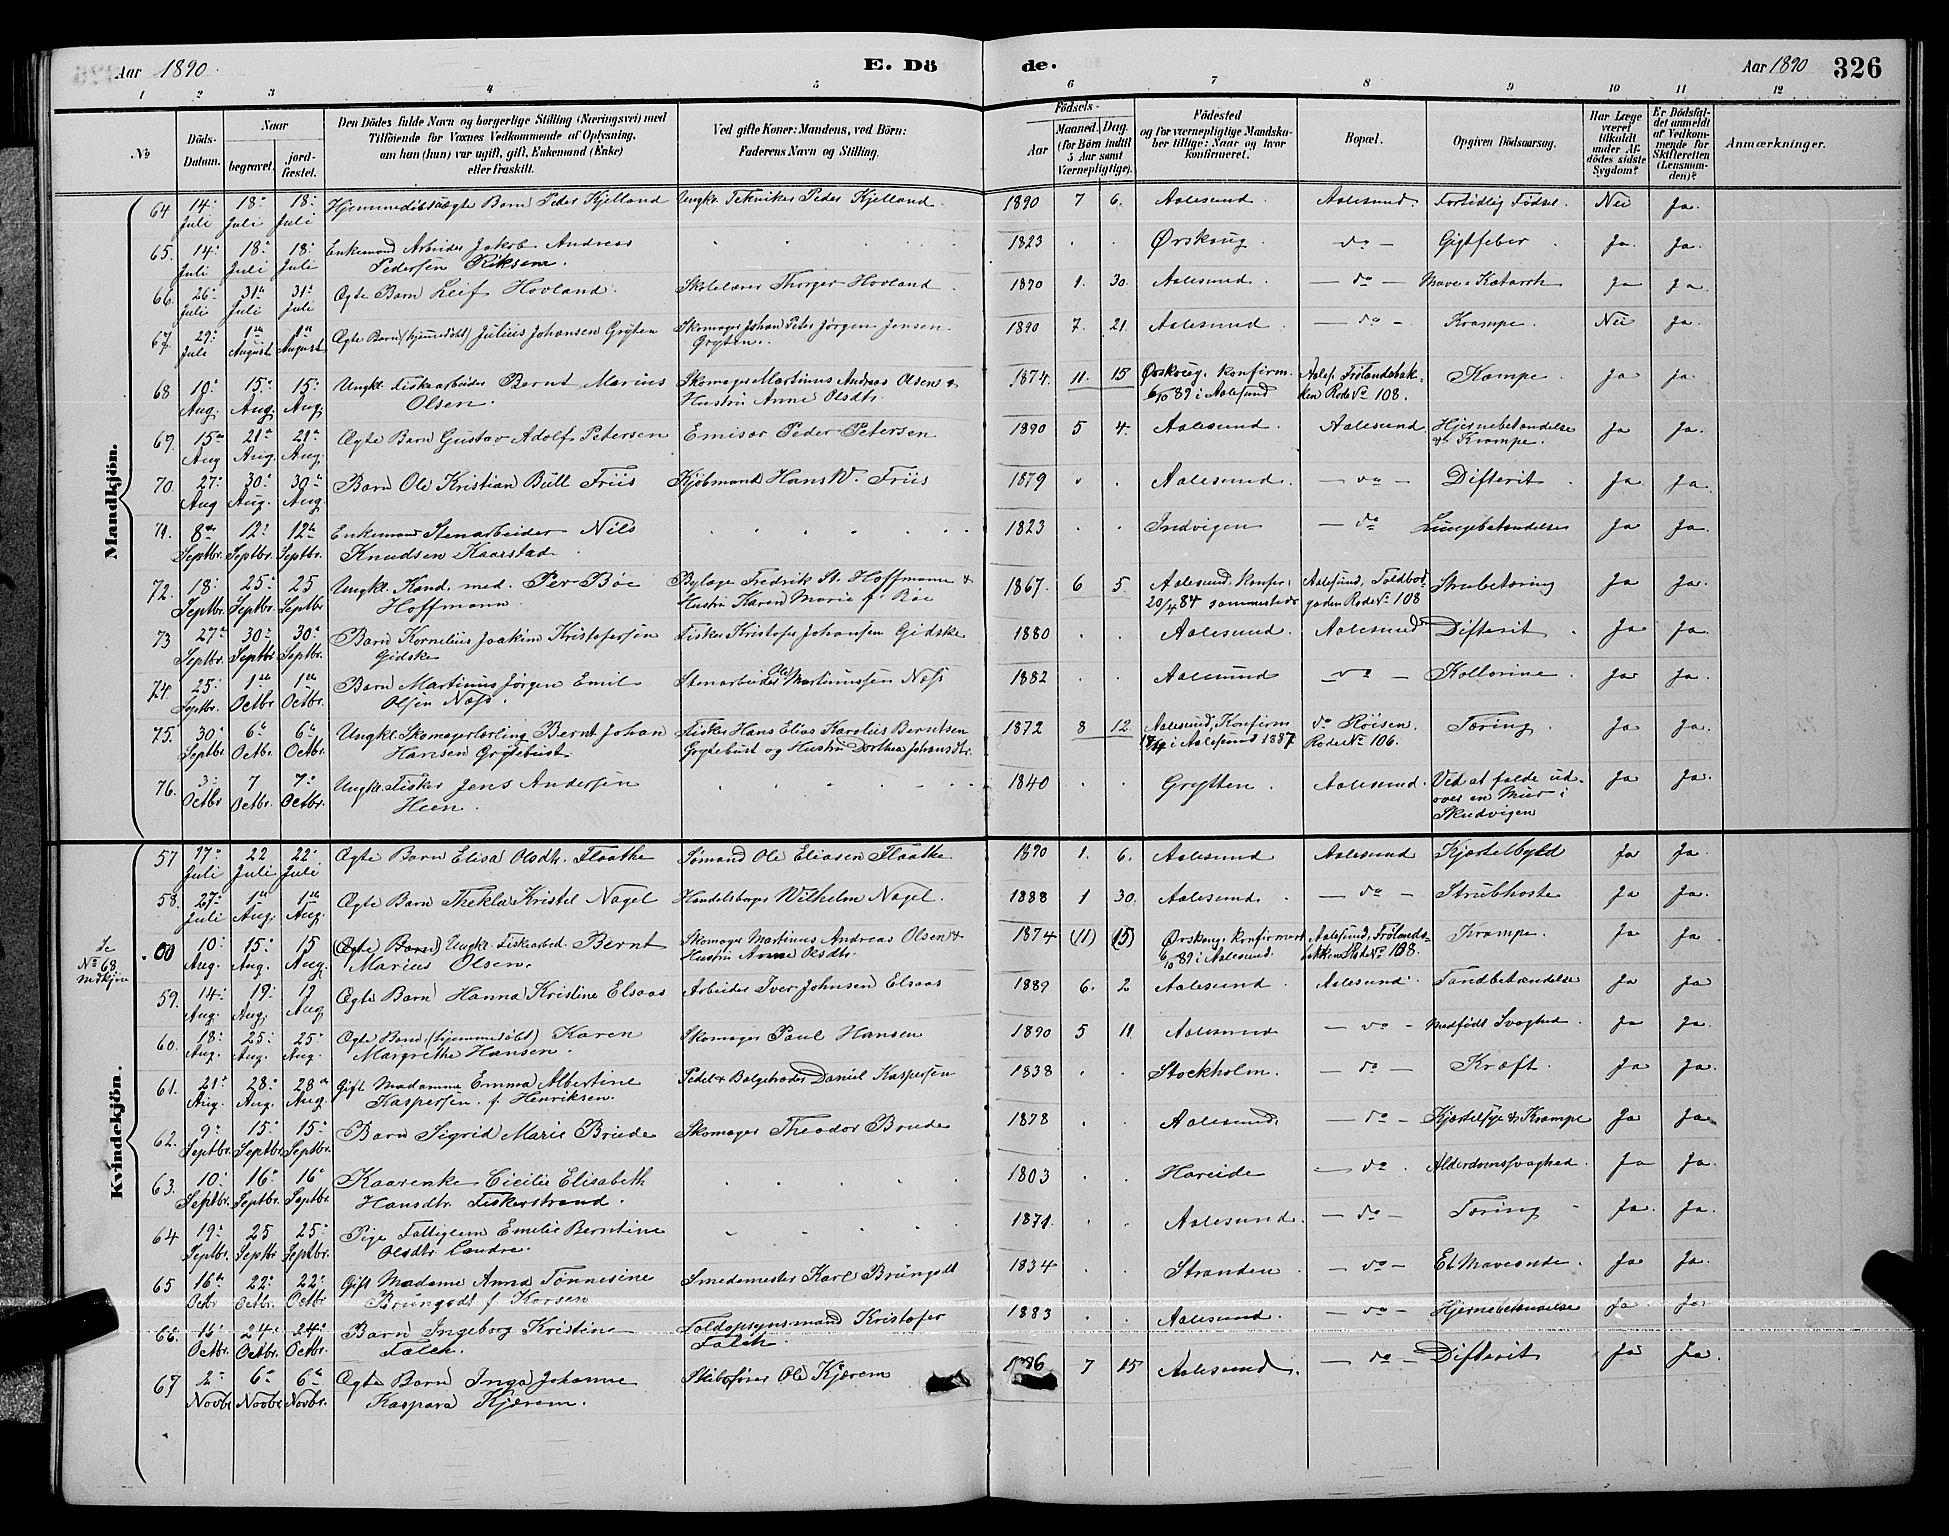 Aar 1890.
E. Dö
de.
Aar 1890
326
1 2 3 4 5 6 7 8 9 10 11 12
No
Döds-Datum.
Naar
begravet.
jordfæstet.
Den Dödes fulde Navn og borgerlige Stilling (Næringsvei) med
Tilföiende for Voxnes Vedkommende af Oplysning,
om han (hun) var ugift, gift, Enkemand (Enke)
eller fraskilt.
Ved gifte Koner: Mandens, ved Börn:
Faderens Navn og Stilling.
Födsels-
Aar
Maaned. Dag.
(for Börn indtil
5 Aar samt
Værnepligtige).
Födested
og for værnepligtige Mandskaber tillige: Naar og hvor
konfirmeret.
Bopæl.
Opgiven Dödsaarsag.
Har Læge
været
tilkaldt
under Afdödes sidste
Sygdom?
Er Dödsfaldet anmeldt
af Vedkommende for
Skifteretten
(Lensmanden)?
Anmærkninger.
Mandkjön.
64 14. Juli 18. Juli 18. Juli Hjemmedöbt uægte Barn Peder Kjelland Ungk. Tekniker Peder Kjelland. 1890 7 6. Aalesund. Aalesund. Fortidlig Födsel. Nei Ja.
65. 14. Juli 18. Juli 18. Juli Enkemand Arbeider Jakob Andreas
Pedersen 1823 . . Ørskoug. do Gigtfeber Ja. Ja.
66. 26. Juli 31. Juli 31. Juli Ægte Barn Leif Hovland. Skolelærer Thorger Hovland. 1890 1. 30. Aalesund. do Mave-Katarrh Ja Ja.
67. 29. Juli 1ste August 1ste August Ægte Barn (hjemmedöbt) Julius Johansen Gryten Skomager Johan Peter Jörgen Jensen
Gryten. 1890 7. 21. Aalesund. do Krampe. Nei Ja.
68 10. Aug. 15. Aug. 15. Aug. Ungkl. Fiskearbeider Bernt Marius
Olsen. Skomager Martinus Andreas Olsen &
Hustru Anne Olsdtr. 1874. 11. 15 Ørskoug. konfirm.
6/10 89 i Aalesund Aales. Frölandsbakken Rode No 108. Kampe. Ja Ja.
69. 15. Aug 21. Aug. 21. Aug. Ægte Barn Gustav Adolf Petersen Emisær Peder Petersen 1890 5 4. Aalesund. Aalesund. Hjernebetændelse
& Krampe. Ja Ja.
70. 27. Aug 30. Aug. 30. Aug. Barn Ole Kristian Bull Friis Kjöbmand Hans W. Friis 1879 . . Aalesund. do Difterit. Ja Ja.
71. 8. Septbr. 12. Septbr. 12. Septbr. Enkemand Stenarbeider Nils
Knudsen Kaarstad 1823 . . Indvigen do Lungebetændelse Ja Ja.
72. 18. Septbr. 25. Septbr. 25 Septbr Ungkl. Kand. med. Per Böe
Hoffmann. Bylæge Fredrik St. Hoffmann &
Hustru Karen Marie f. Böe 1867. 6 5. Aalesund, konfir.
20/4 84 sammesteds Aalesund, Toldbodgaden Rode No 108 Strubetæring Ja Ja.
73 27. Septbr. 30. Septbr 30. Septbr. Barn Kornelius Joakim Kristofersen
Gidske Fisker Kristofer Johansen Gidske 1880 . . Aalesund. Aalesund Difterit. Ja Ja.
74 25. Septbr. 1ste Octbr. 1ste Octbr. Barn Martinus Jörgen Emil
Olsen Næss. Stenarbeider Ole Martinussen Næss 1882 . . Aalesund do Kollorine. Ja Ja.
75. 30. Septbr 6. Octbr. 6. Octbr. Ungkl. Skomagerlærling Bernt Johan
Hansen Grytebust. Fisker Hans Elias Karolius Berntsen
Grytebust og Hustru Dorthea Johansdtr. 1872 8 12. Aalesund, Konfirm
i Aalesund 1887 do Röisen.
Rode No 106. Tæring. Ja Ja.
76. 3. Octbr 7 Octbr. 7. Octbr. Ungkl. Fisker Jens Andersen
Heen. 1840 . . Grytten. Aalesund. Ved at falde udover en Muur i
Skudvigen Ja Ja.
Kvindekjön.
57 17. Juli 22 Juli 22. Juli Ægte Barn Elisa Olsdtr. Flaathe Sömand Ole Eliasen Flaathe. 1890 1. 6. Aalesund Aalesund Kjertelbyld Ja Ja.
58. 27. Juli 1ste Aug. 1ste Aug. Ægte Barn Thekla Kristel Nagel Handelsborger Wilhelm Nagel. 1888 1 30. Aalesund. do Strubhoste Ja Ja.
Se
No 68
Mdkjön
00 10. Aug. 15. Aug. 15 Aug. (Ægte Barn) Ungkl. Fiskearbed. Bernt
Marius Olsen. Skomager Martinus Andreas Olsen &
Hustru Anne Olsdtr. 1874 (11) (15) Ørskoug, konfirmert
6/10 89 i Aalesund. Aalesund, Frölandsbakken Rode No 108. Krampe. Ja Ja.
59. 14. Aug. 19. Aug. 19 Aug Ægte Barn Hanna Kristine Elsaas Arbeider Iver Johnsen Elsaas 1889 6. 2 Aalesund. Aalesund. Tandbetændelse Ja Ja
60. 18. Aug. 25. Aug. 25. Aug. Ægte Barn (hjemmedöbt) Karen
Margrethe Hansen. Skomager Paul Hansen 1890 5 11 Aalesund do Medfödt Svaghed. Ja Ja.
61. 21. Aug. 28. Aug. 28. Aug. Gift Madamme Emma Albertine
Kaspersen. f. Henriksen. Pedel & Bælgetræder Daniel Kaspersen 1838 . . Stockholm. do Kræft. Ja Ja.
62. 9. Septbr. 15. Septbr. 15. Septbr. Barn Sigrid Marie Brude Skomager Theodor Brude 1878 . . Aalesund. do Kjertelsyge & Krampe Ja Ja.
63. 10. Septbr. 16. Septbr. 16 Septbr. Kaarenke Cicilie Elisabeth
Hansdtr. Fiskerstrand. 1803 . . Hareide do Alderdomssvaghed. Ja Ja.
64 19. Septbr. 25 Septbr 25. Septbr. Pige Fattiglem Emilie Berntine
Olsdtr. Landre. 1871. . . Aalesund. do Tæring Ja. Ja.
65 16. Octbr 22. Octbr. 22. Octbr Gift Madame Anna Tönnesine
Brungodt f. Korsen Smedemester Karl Brungodt 1834 . . Stranden do Et Mavesaade. Ja Ja.
66. 15. Octbr. 24. Octbr. 24. Octbr. Barn Ingeborg Kristine
Falch. Toldopsynsmand Kristofer
Falch. 1883 . . Aalesund. do Hjernebetændelse Ja Ja.
67 2. Novbr 6. Novbr 6. Novbr. Ægte Barn Inga Johanne
Kaspara Kjærem. Skibsförer Ole Kjærem 1886 7 15 Aalesund. do Difterit Ja Ja.